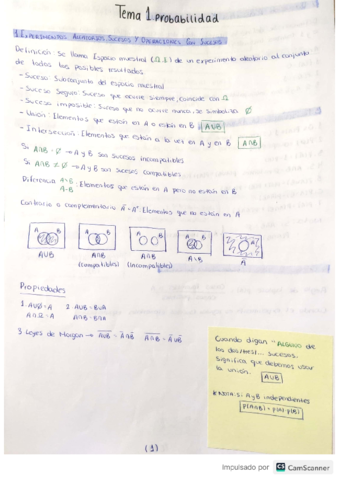 Tema 1 probabilidad
1. Experimentos Aleatorios Sucesos y Operaciones con Sucesos
Definición: Se llama Espacio muestral (Ω, E) de un experimento aleatorio al conjunto
de todos los posibles resultados
- Suceso: Subconjunto del espacio muestral
- Suceso Seguro: Suceso que ocurre siempre, coincide con Ω
- Suceso imposible: Suceso que no ocurre nunca, se simboliza Ø
- Unión: Elementos que están en A o están en B A∪B
- Intersección: Elementos que están a la vez en A y en B A∩B
Si A∩B = Ø → A y B son sucesos incompatibles
Si A∩B ≠ Ø → A y B son sucesos compatibles
Diferencia A-B: Elementos que están en A pero no están en B
Contrario o complementario Elementos que no están en A
A B A B A B A B A
A∪B A∩B A∩B A\B Ā
(compatibles) (incompatibles)
Propiedades
1. A∪Ø = A 2. A∪B = B∪A
A∩Ω = A A∩B = B∩A
3. Leyes de Morgan →
Cuando digan "Alguno de
los dos/tres/... sucesos.
Significa que debemos usar
la unión.
A∪B
A y B independientes
P(A∩B) = P(A) · P(B)
(1)
Impulsado por CS CamScanner